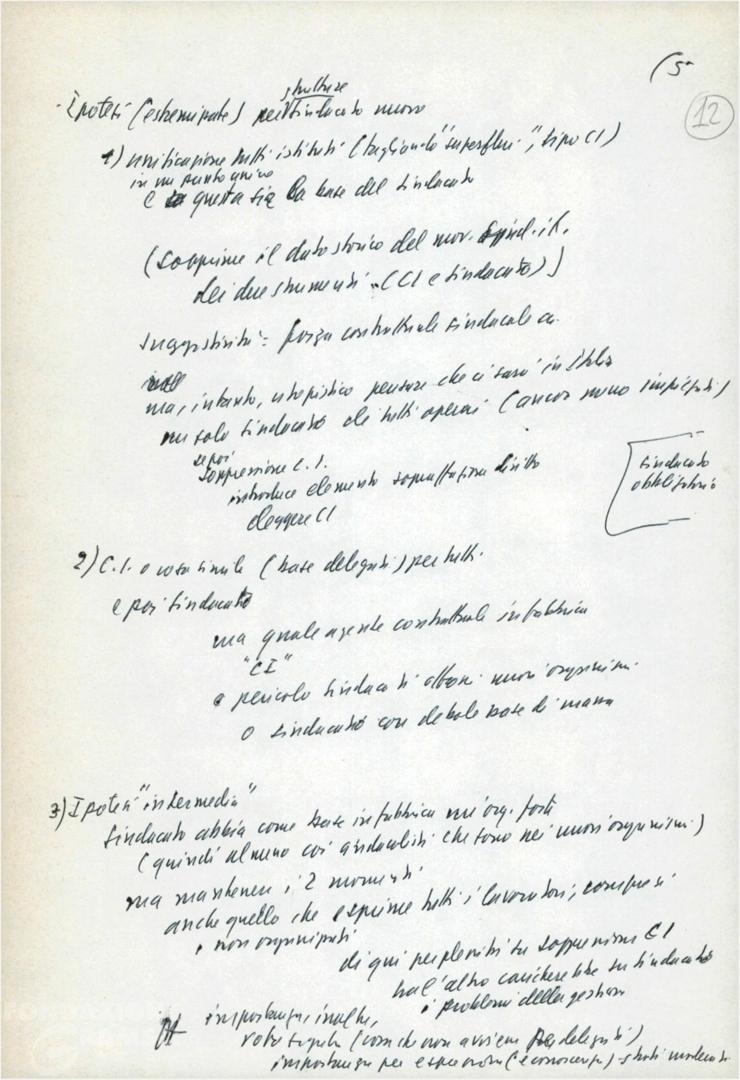 (5
12
strutture
Ipotesi (estremizzate) per sindacato nuovo
1) unificazione tutti istituti (tagliando "superflui", tipo CI)
in un punto unico
e questa sia la base del sindacato
(sopprime il dato storico del mov. sind. it.
dei due strumenti (CI e sindacato))
suggestività = forza contrattuale sindacale
ma, intanto, utopistico pensare che ci sarà in Italia
un solo sindacato di tutti operai (ancor meno impiegati)
se poi
soppressione C.I.
introduce elemento sopraffazione diritto
eleggere CI
sindacato
obbligatorio
2) C.I. o cosa simile (base delegati) per tutti
e poi sindacato
ma quale agente contrattuale in fabbrica
"CI"
e pericolo sindacati nuovi organismi
o sindacato con debole base di massa
3) Ipotesi "intermedia"
Sindacato abbia come base in fabbrica un'org. forte
(quindi almeno coi sindacalisti che sono nei nuovi organismi)
ma mantenere i 2 momenti
anche quello che esprime tutti i lavoratori, compresi
i non organizzati
di qui perplessità su soppressione CI
tra l'altro caricherebbe su sindacato
i problemi della gestione
importanza, inoltre,
voto segreto (cosa che non avviene delegati)
importanza per esprimere (e conoscere) stati